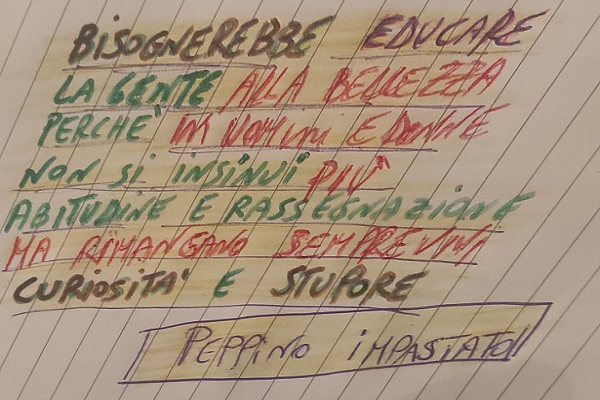 BISOGNEREBBE EDUCARE
LA GENTE ALLA BELLEZZA
PERCHE' IN UOMINI E DONNE
NON SI INSINUI PIU'
ABITUDINE E RASSEGNAZIONE
MA RIMANGANO SEMPRE VIVI
CURIOSITA' E STUPORE
PEPPINO IMPASTATO